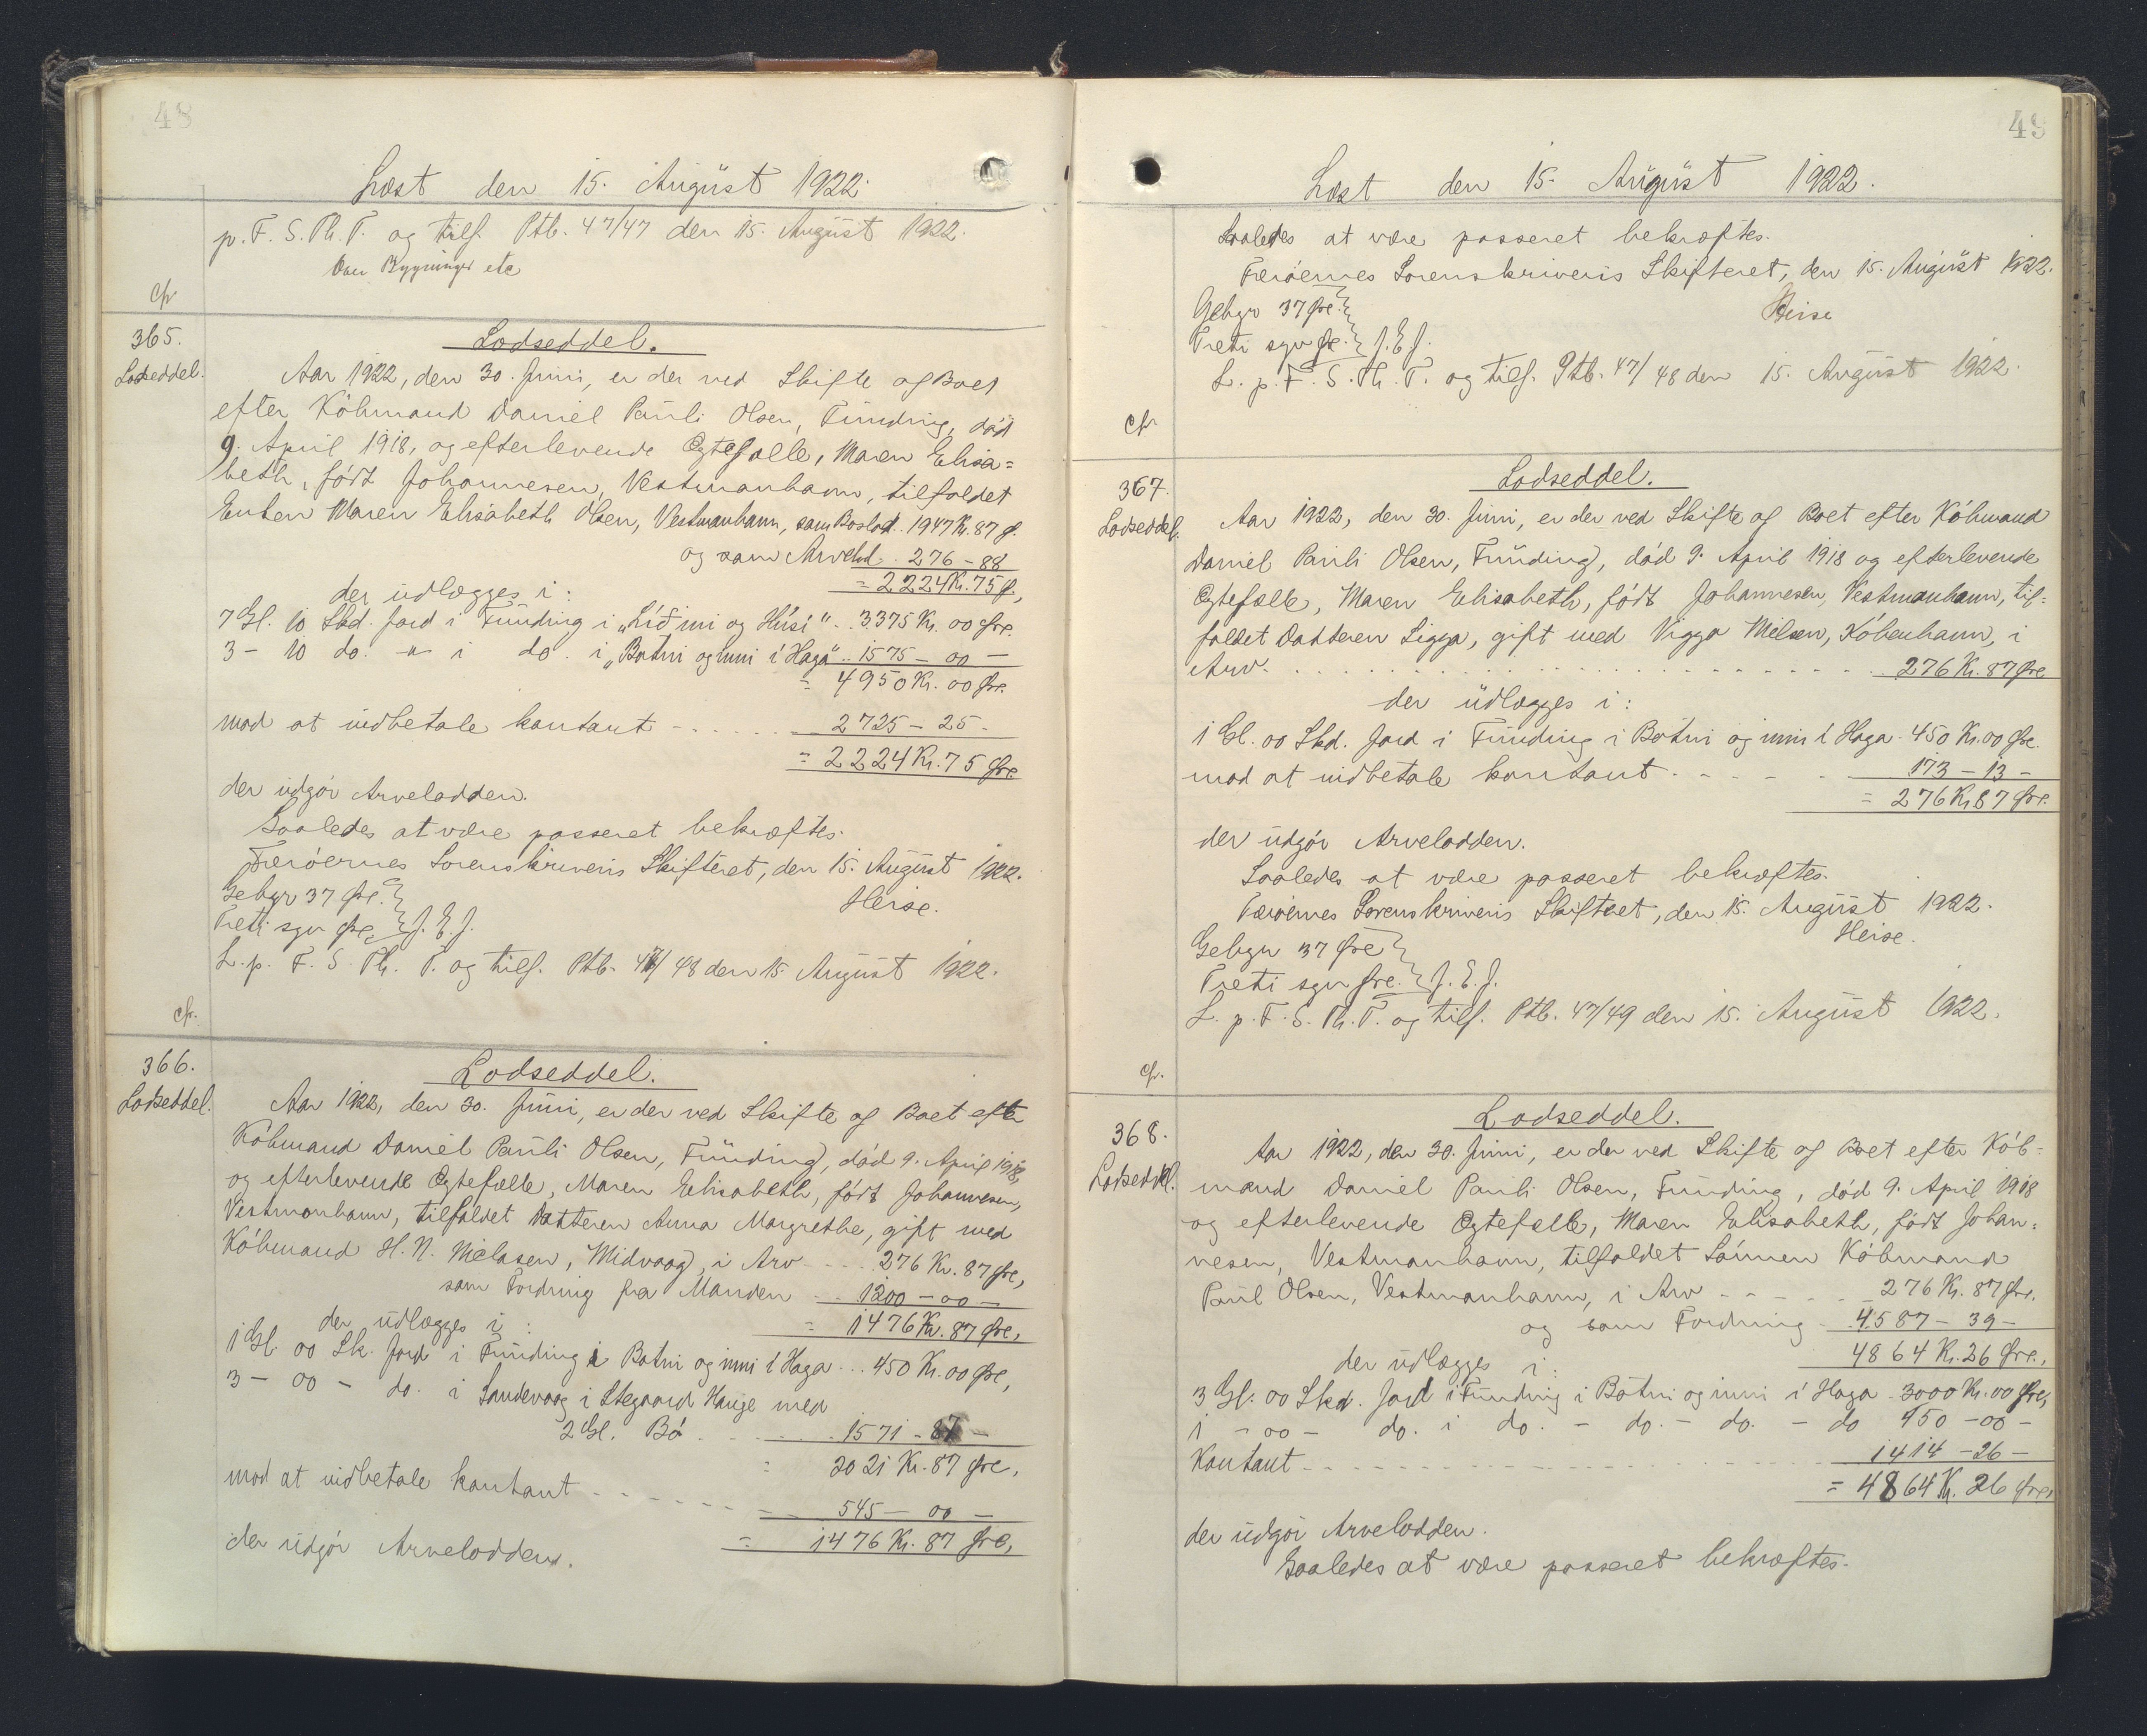 48
Læst den 15. August 1922.
p. F. S. Th. P. og tilf. Ptb. 47/47 den 15. August 1922.
Bygninger etc
cfr
365.
Lodseddel.
Lodseddel.
Aar 1922, den 30. Juni, er der ved Skifte af Boet
efter Købmand Daniel Pauli Olsen, Funding, død
9. April 1918, og efterlevende Ægtefælle, Maren Elisa=
beth, født Johannesen, Vestmanhavn, tilfaldet
Enken Maren Elisabeth Olsen, Vestmanhavn, som Boslod. 1947 Kr. 87 Ø.
og som Arvelod. . 276 - 88
= 2224 Kr. 75 Ø.,
der udlægges i:
7 Gl. 10 Skd. Jord i Funding i „Líð inni og Húsi“ . . 3375 Kr. 00 Øre.
3 - 10 do. - " - i do. i „Botni og inni í Haga“ . . 1575 - 00 -
= 4950 Kr. 00 Øre.
mod at indbetale kontant - . . . . . 2725 - 25 -
= 2224 Kr. 75 Øre
der udgør Arvelodden.
Saaledes at være passeret bekræftes.
Færøernes Sorenskriveris Skifteret, den 15. August 1922.
Heise.
Gebyr 37 Øre. }
Treti syv Øre. } J. E. J.
L. p. F. S. Th. P. og tilf. Ptb. 47/48 den 15. August 1922.
cfr.
366.
Lodseddel.
Lodseddel.
Aar 1922, den 30. Juni, er der ved Skifte af Boet efter
Købmand Daniel Pauli Olsen, Funding, død 9. April 1918,
og efterlevende Ægtefælle, Maren Elisabeth, født Johannesen,
Vestmanhavn, tilfaldet Datteren Anna Margrethe, gift med
Købmand H. N. Niclasen, Midvaag, i Arv . . . . 276 Kr. 87 Øre,
som Fordring fra Manden . . 1200 - 00 -
= 1476 Kr. 87 Øre,
der udlægges i :
1 Gl. 00 Sk. Jord i Funding i Botni og inni í Haga . . . 450 Kr. 00 Øre,
3 - 00 - do. i Sandevaag i Stegaard Hauge med
2 Gl. Bø . . . . . 1571 - 87 -
= 2021 Kr. 87 Øre,
mod at indbetale kontant . . . . . 545 - 00 -
= 1476 Kr. 87 Øre,
der udgør Arvelodden.
49
Læst den 15. August 1922.
Saaledes at være passeret bekræftes.
Færøernes Sorenskriveris Skifteret, den 15. August 1922.
Heise
Gebyr 37 Øre. }
Treti syv Øre. } J. E. J.
L. p. F. S. Th. P. og tilf. Ptb. 47/48 den 15. August 1922.
cfr
367.
Lodseddel.
Lodseddel.
Aar 1922, den 30. Juni, er der ved Skifte af Boet efter Købmand
Daniel Pauli Olsen, Funding, død 9. April 1918 og efterlevende
Ægtefælle, Maren Elisabeth, født Johannesen, Vestmanhavn, til=
faldet Datteren Sigga, gift med Viggo Nielsen, København, i
Arv. . . . . . . . . 276 Kr. 87 Øre
der udlægges i :
1 Gl. 00 Skd. Jord i Funding i Botni og inni í Haga . 450 Kr. 00 Øre.
mod at indbetale kontant . - - - - 173 - 13 -
= 276 Kr. 87 Øre.
der udgør Arvelodden.
Saaledes at være passeret bekræftes.
Færøernes Sorenskriveris Skifteret, den 15. August 1922.
Heise.
Gebyr 37 Øre }
Treti syv Øre. } J. E. J.
L. p. F. S. Th. P. og tilf. Ptb. 47/49 den 15. August 1922.
cfr.
368.
Lodseddel.
Lodseddel.
Aar 1922, den 30. Juni, er der ved Skifte af Boet efter Køb-
mand Daniel Pauli Olsen, Funding, død 9. April 1918
og efterlevende Ægtefælle, Maren Elisabeth, født Johan=
nesen, Vestmanhavn, tilfaldet Sønnen Købmand
Paul Olsen, Vestmanhavn, i Arv - - - - - 276 Kr. 87 Øre.
og som Fordring . 4587 - 39 -
4864 Kr. 26 Øre.,
der udlægges i:
3 Gl. 00 Skd. Jord i Funding i Botni og inni í Haga . 3000 Kr. 00 Øre,
1 - 00 - do. i do. - do. - do. - do 450 - 00 -
Kontant - - - - - - 1414 - 26 -
= 4864 Kr. 26 Øre,
der udgør Arvelodden.
Saaledes at være passeret bekræftes.